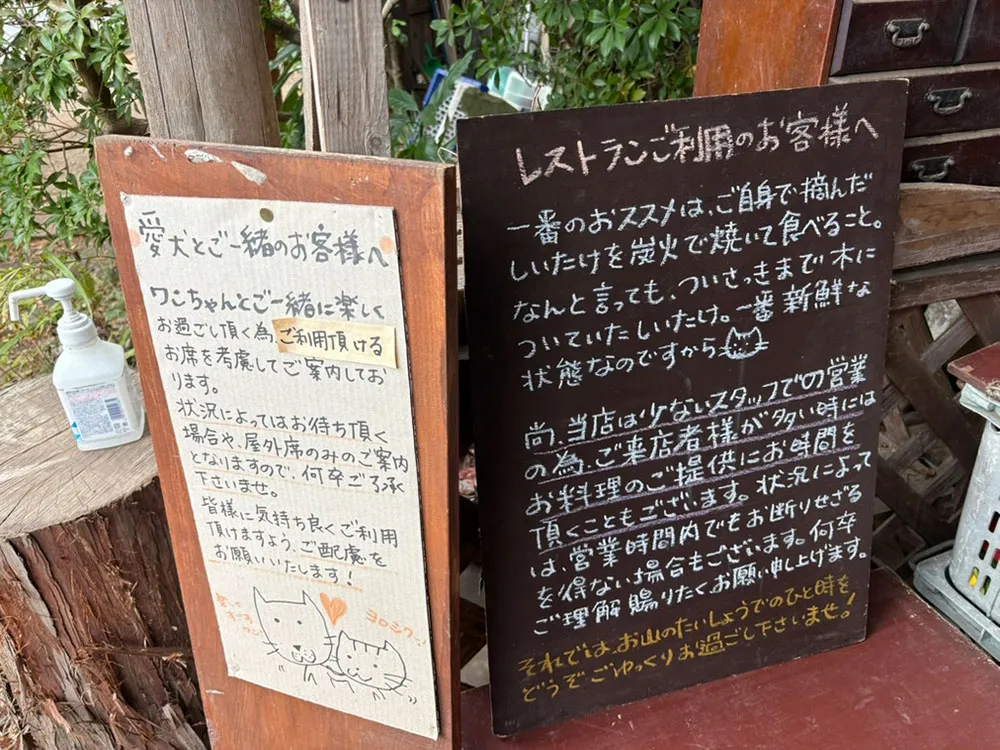 愛犬とご一緒のお客様へ
ワンちゃんとご一緒に楽しく
お過ごし頂く為、ご利用頂ける
お席を考慮してご案内してお
ります。
状況によってはお待ち頂く
場合や、屋外席のみのご案内
となりますので、何卒ご了承
下さいませ。
皆様に気持ち良くご利用
頂けますよう、ご配慮を
お願いいたします！
ヨロシク
レストランご利用のお客様へ
一番のおススメは、ご自身で摘んだ
しいたけを炭火で焼いて食べること。
なんと言っても、ついさっきまで木に
ついていたしいたけ。一番新鮮な
状態なのですから
尚、当店は少ないスタッフでの営業
の為、ご来店者様が多い時には
お料理のご提供にお時間を
頂くこともございます。状況によって
は、営業時間内でもお断りせざる
を得ない場合もございます。何卒
ご理解賜りたくお願い申し上げます。
それでは、お山のたいしょうでのひと時を
どうぞごゆっくりお過ごし下さいませ！